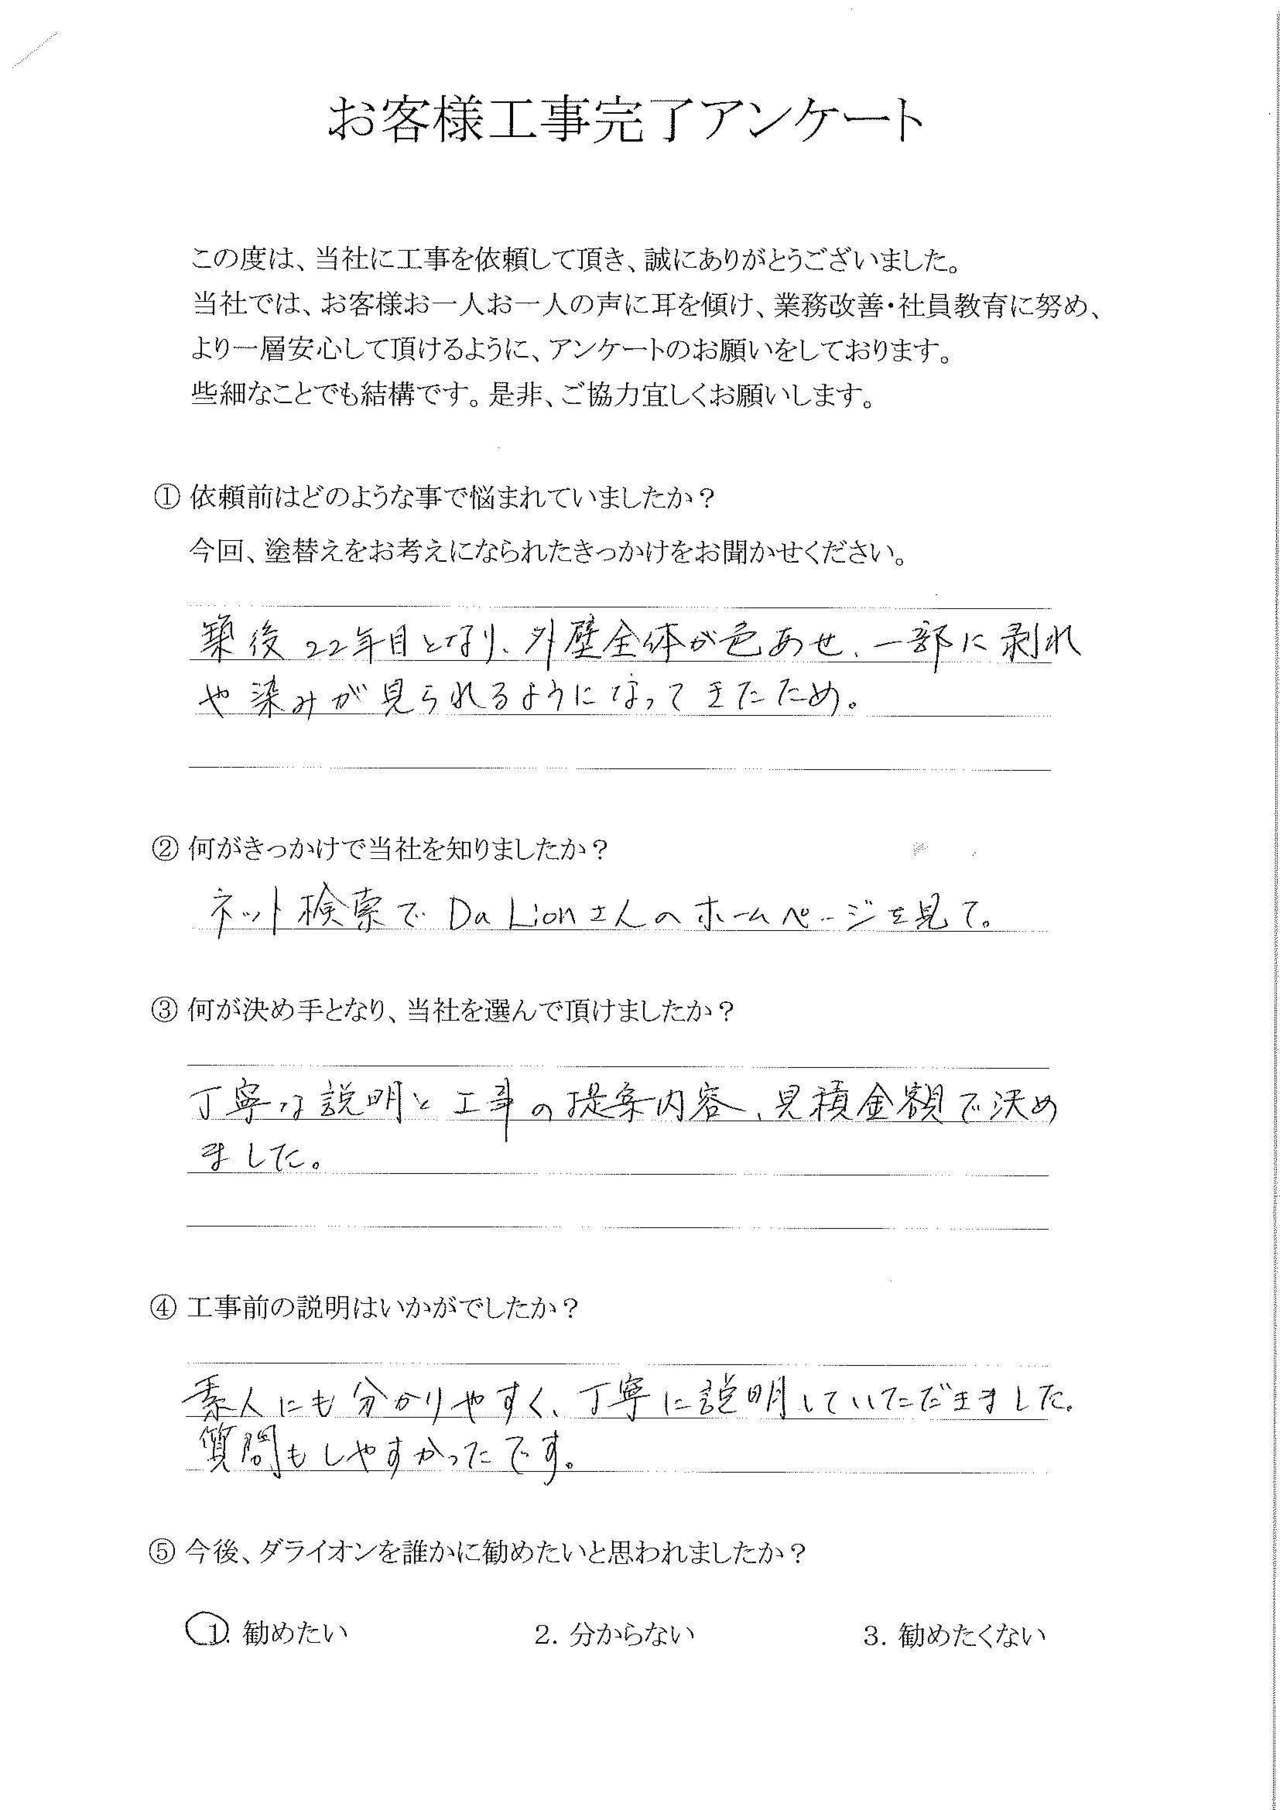 お客様工事完了アンケート
この度は、当社に工事を依頼して頂き、誠にありがとうございました。
当社では、お客様お一人お一人の声に耳を傾け、業務改善・社員教育に努め、
より一層安心して頂けるように、アンケートのお願いをしております。
些細なことでも結構です。是非、ご協力宜しくお願いします。
① 依頼前はどのような事で悩まれていましたか？
今回、塗替えをお考えになられたきっかけをお聞かせください。
築後22年目となり、外壁全体が色あせ、一部に剥れ
や染みが見られるようになってきたため。
② 何がきっかけで当社を知りましたか？
ネット検索で Da Lionさんのホームページを見て。
③ 何が決め手となり、当社を選んで頂けましたか？
丁寧な説明と工事の提案内容、見積金額で決め
ました。
④ 工事前の説明はいかがでしたか？
素人にも分かりやすく、丁寧に説明していただきました。
質問もしやすかったです。
⑤ 今後、ダライオンを誰かに勧めたいと思われましたか？
1. 勧めたい 2. 分からない 3. 勧めたくない